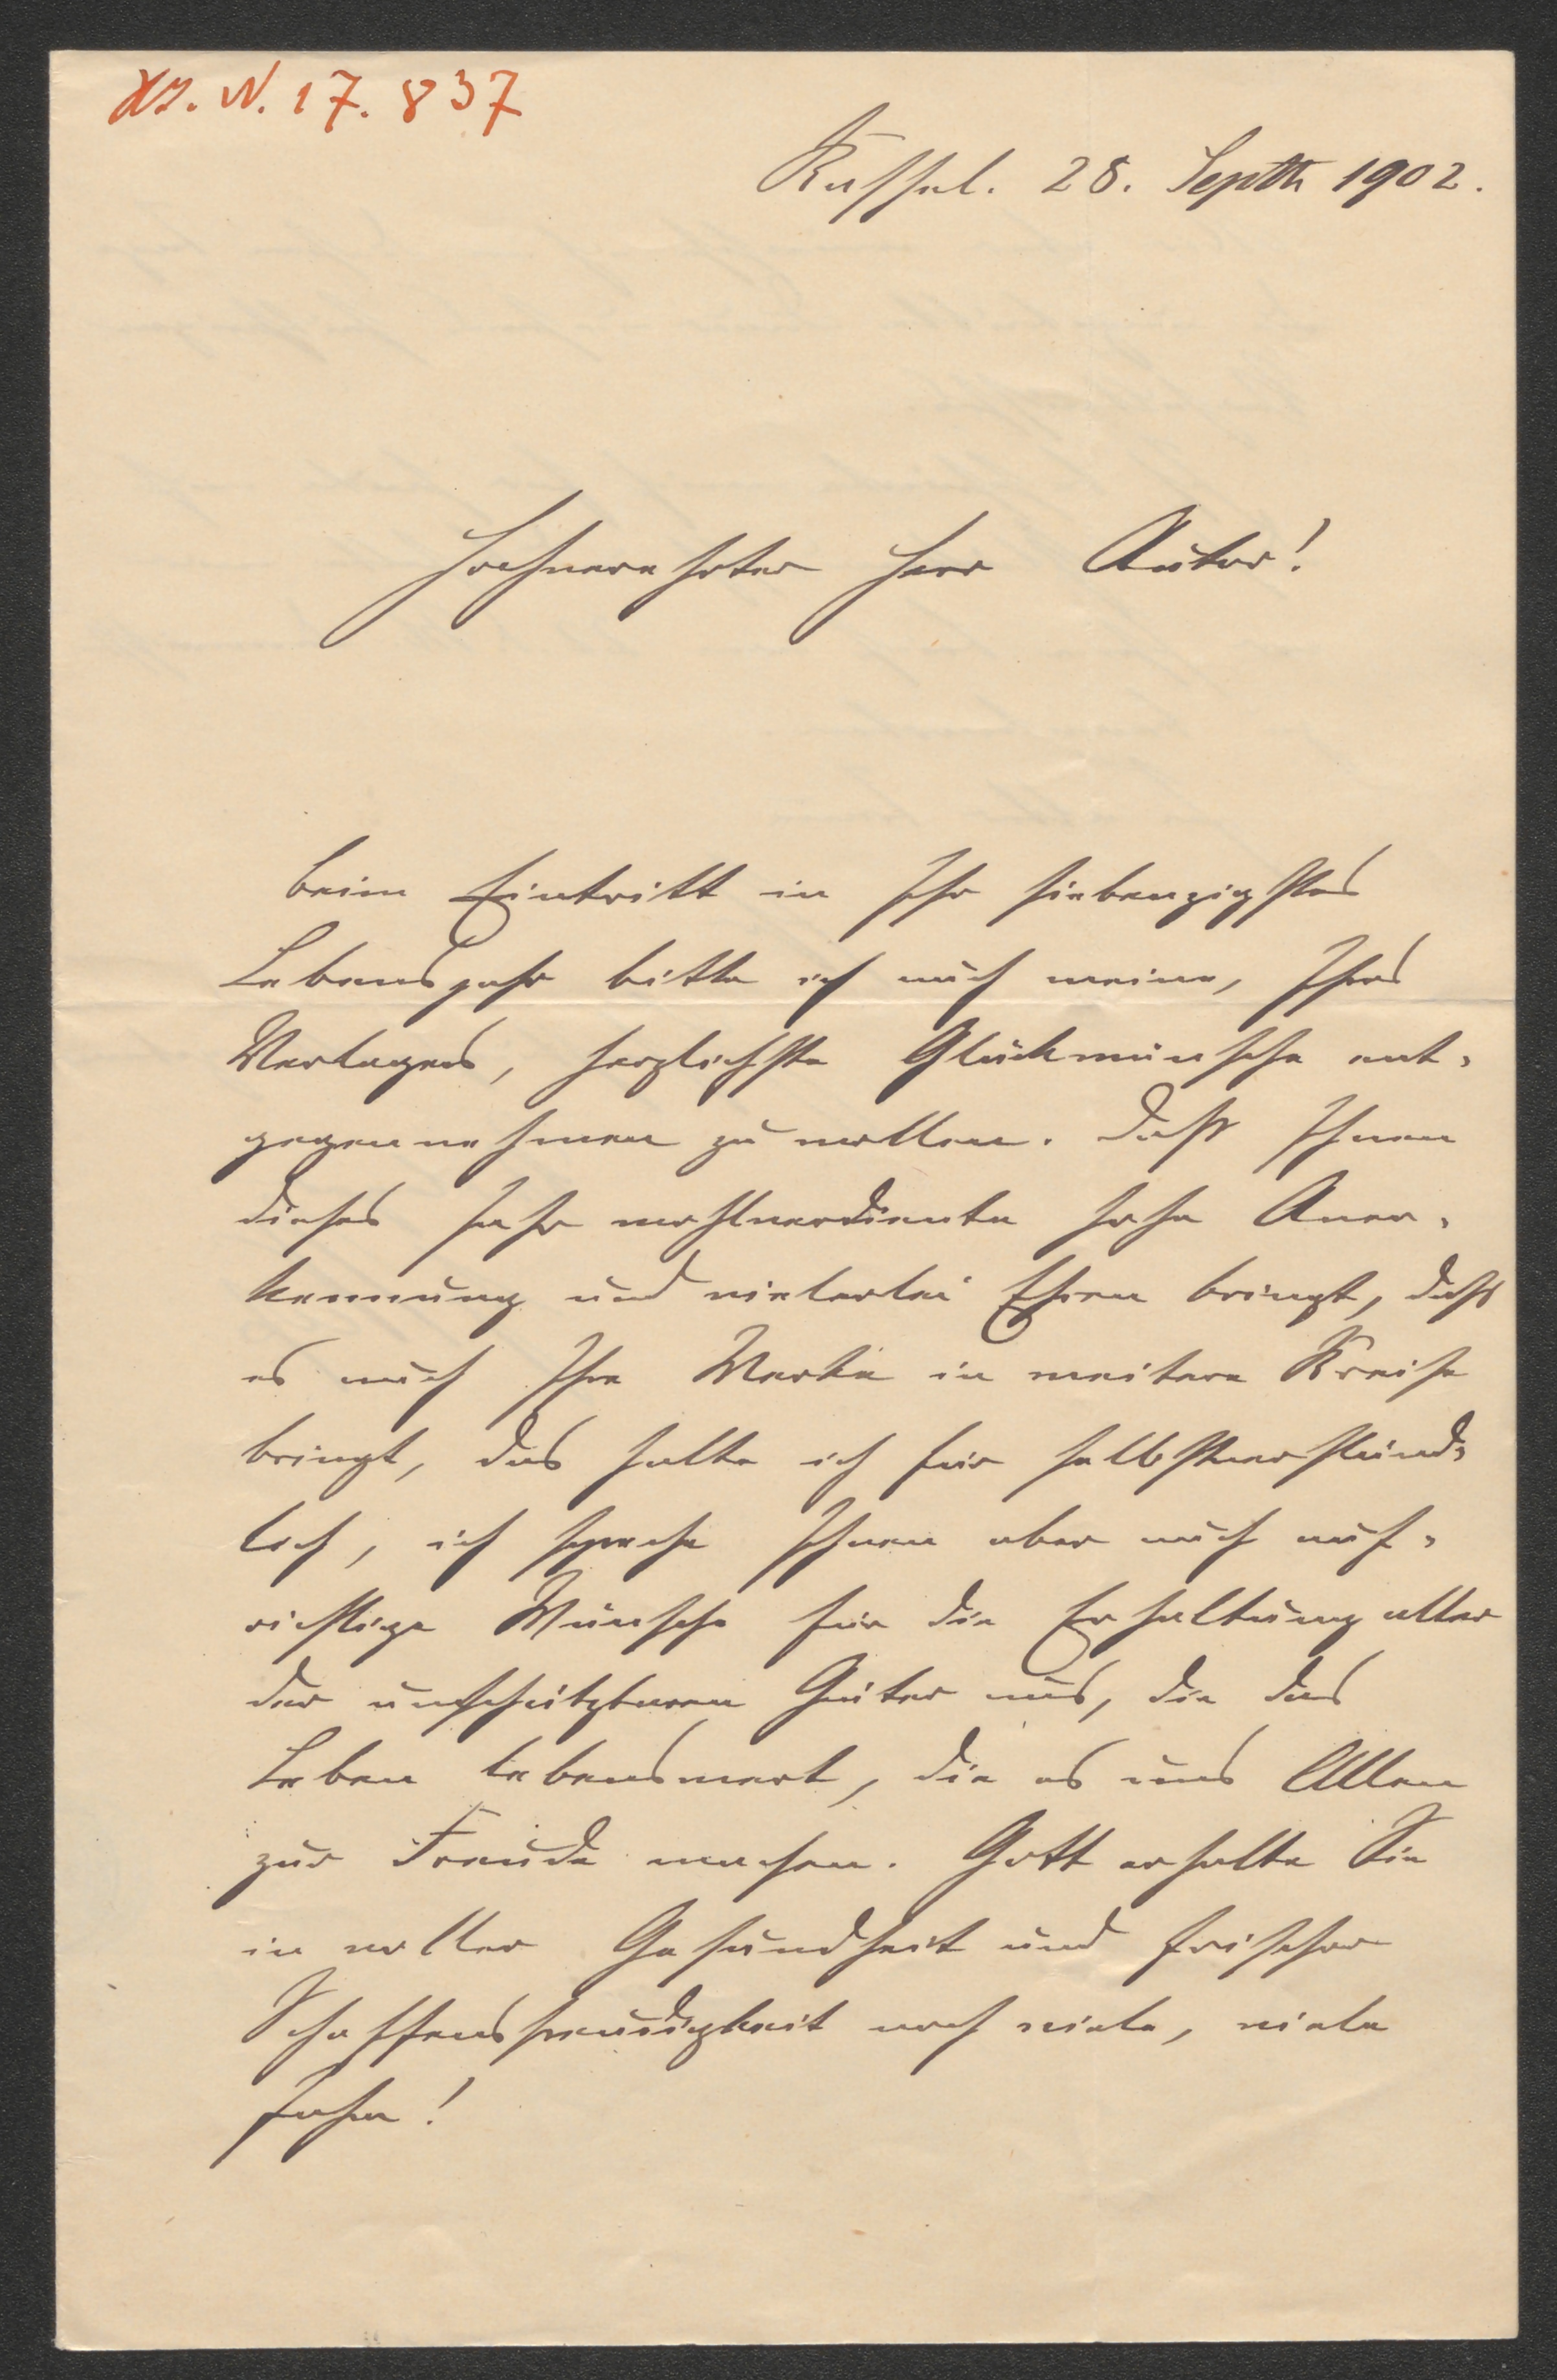 Hs. N. 17. 837
Kassel. 28. Septbr 1902.
Hochverehrter Herr Autor!
beim Eintritt in Ihr siebenzigstes
Lebensjahr bitte ich auch meine, Ihres
Verlegers, herzlichste Glückwünsche ent-
gegennehmen zu wollen. Daß Ihnen
dieses Jahr wohlverdiente hohe Aner-
kennung und vielerlei Ehren bringt, daß
es auch Ihre Werke in weitere Kreise
bringt, das halte ich für selbstverständ-
lich, ich spreche Ihnen aber auch auf-
richtige Wünsche für die Erhaltung aller
der unschätzbaren Güter aus, die das
Leben lebenswert, die es uns Allen
zur Freude machen. Gott erhalte Sie
in voller Gesundheit und frischer
Schaffensfreudigkeit noch viele, viele
Jahre!